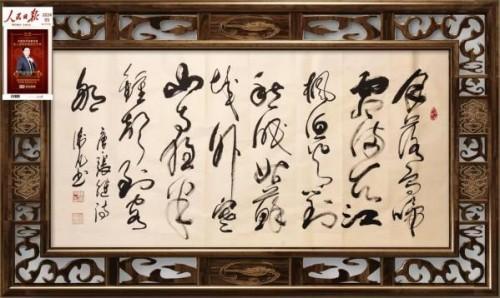 人民日报
2024
05
月落烏啼
霜满天江
枫渔火对
愁眠姑蘇
城外寒
山寺夜半
鐘聲到客
船
唐張继诗